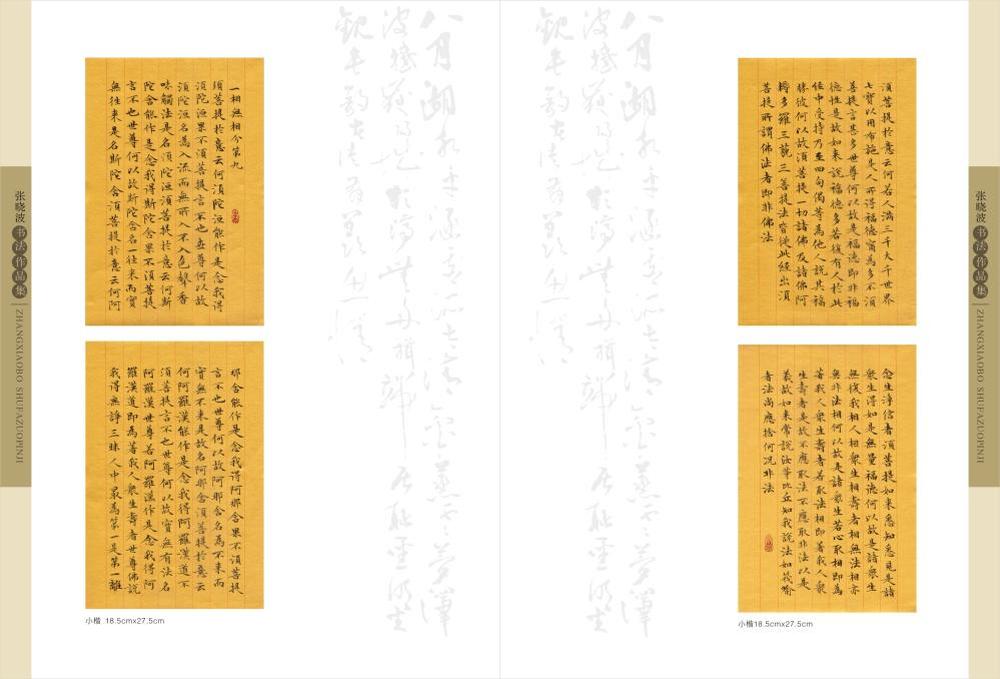 张晓波书法作品集
ZHANGXIAOBO SHUFAZUOPINJI
一相無相分第九
須菩提於意云何須陀洹能作是念我得
須陀洹果不須菩提言不也世尊何以故
須陀洹名為入流而無所入不入色聲香
味觸法是名須陀洹須菩提於意云何斯
陀含能作是念我得斯陀含果不須菩提
言不也世尊何以故斯陀含名一往來而實
無往來是名斯陀含須菩提於意云何阿
那含能作是念我得阿那含果不須菩提
言不也世尊何以故阿那含名為不來而
實無不來是故名阿那含須菩提於意云
何阿羅漢能作是念我得阿羅漢道不
須菩提言不也世尊何以故實無有法名
阿羅漢世尊若阿羅漢作是念我得阿
羅漢道即為著我人衆生壽者世尊佛說
我得無諍三昧人中最為第一是第一離
小楷 18.5cmx27.5cm
八月湖水平涵虛混太清氣蒸雲夢澤
波撼岳陽城欲濟無舟楫端居恥聖明坐
觀垂釣者徒有羨魚情
八月湖水平涵虛混太清氣蒸雲夢澤
波撼岳陽城欲濟無舟楫端居恥聖明坐
觀垂釣者徒有羨魚情
須菩提於意云何若人滿三千大千世界
七寶以用布施是人所得福德寧為多不須
菩提言甚多世尊何以故是福德即非福
德性是故如來說福德多若復有人於此
經中受持乃至四句偈等為他人說其福
勝彼何以故須菩提一切諸佛及諸佛阿
耨多羅三藐三菩提法皆從此經出須
菩提所謂佛法者即非佛法
念生淨信者須菩提如來悉知悉見是諸
衆生得如是無量福德何以故是諸衆生
無復我相人相衆生相壽者相無法相亦
無非法相何以故是諸衆生若心取相即為
著我人衆生壽者若取法相即著我人衆
生壽者是故不應取法不應取非法以是
義故如來常說汝等比丘知我說法如筏喻
者法尚應捨何況非法
小楷18.5cmx27.5cm
张晓波书法作品集
ZHANGXIAOBO SHUFAZUOPINJI